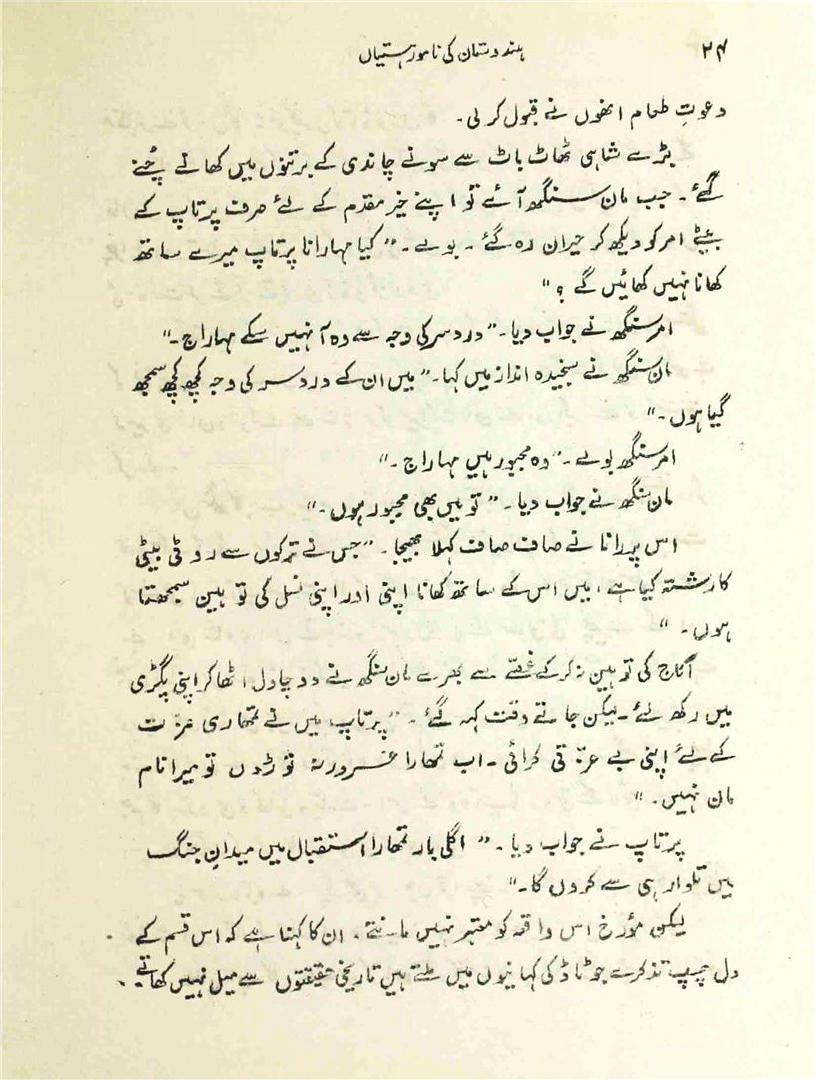 ۲۴
ہندوستان کی نامور ہستیاں
دعوتِ طعام انھوں نے قبول کر لی۔
بڑے شاہی ٹھاٹ باٹ سے سونے چاندی کے برتنوں میں کھانے چُنے
گئے۔ جب مان سنگھ آئے تو اپنے خیر مقدم کے لئے صرف پرتاپ کے
بیٹے امر کو دیکھ کر حیران رہ گئے۔ بولے۔ ”کیا مہارانا پرتاپ میرے ساتھ
کھانا نہیں کھائیں گے ؟“
امر سنگھ نے جواب دیا۔ ”درد سر کی وجہ سے وہ آ نہیں سکے مہاراج۔“
مان سنگھ نے سنجیدہ انداز میں کہا۔ ”میں ان کے درد سر کی وجہ کچھ کچھ سمجھ
گیا ہوں۔“
امر سنگھ بولے۔ ”وہ مجبور ہیں مہاراج۔“
مان سنگھ نے جواب دیا۔ ”تو میں بھی مجبور ہوں۔“
اس پر رانا نے صاف صاف کہلا بھیجا۔ ”جس نے ترکوں سے روٹی بیٹی
کا رشتہ کیا ہے، میں اس کے ساتھ کھانا اپنی اور اپنی نسل کی توہین سمجھتا
ہوں۔“
اناج کی توہین نہ کر کے غصّے سے بھرے مان سنگھ نے دو چاول اٹھا کر اپنی پگڑی
میں رکھ لئے۔ لیکن جاتے وقت کہہ گئے۔ ”پرتاپ میں نے تمھاری عزّت
کے لئے اپنی بے عزّتی کرائی۔ اب تمھارا غرور نہ توڑ دوں تو میرا نام
مان نہیں۔“
پرتاپ نے جواب دیا۔ ”اگلی بار تمھارا استقبال میں میدانِ جنگ
میں تلوار ہی سے کروں گا۔“
لیکن مؤرخ اس واقعہ کو معتبر نہیں مانتے۔ ان کا کہنا ہے کہ اس قسم کے
دل چسپ تذکرے جو ٹاڈ کی کہانیوں میں ملتے ہیں تاریخی حقیقتوں سے میل نہیں کھاتے۔